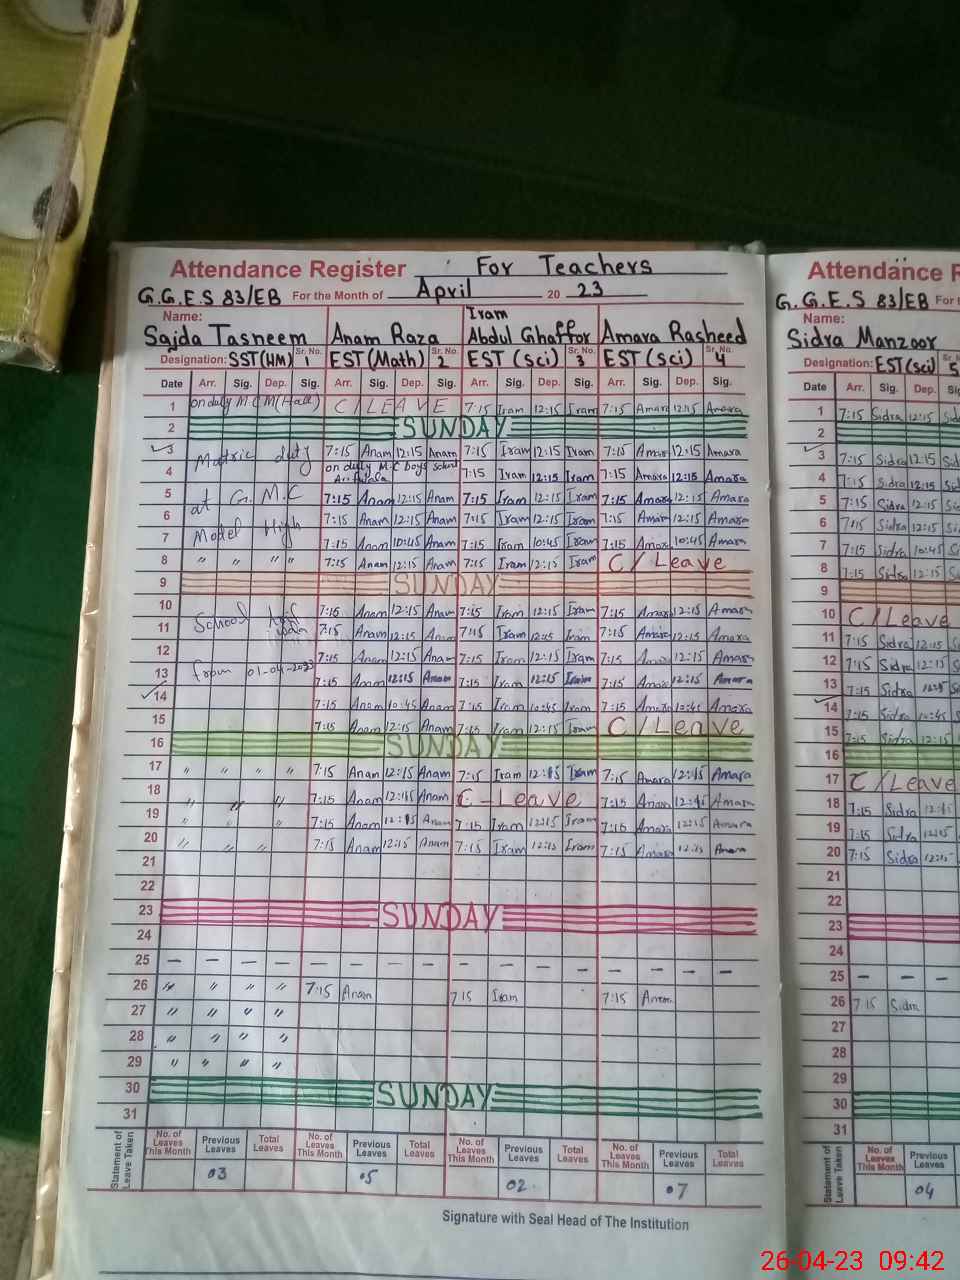 Attendance Register For Teachers
G.G.E.S 83/EB For the Month of April 20 23
Name:
Sajda Tasneem Anam Raza Iram Abdul Ghaffor Amara Rasheed
Designation: SST(HM) Sr. No. 1 EST(Math) Sr. No. 2 EST(sci) Sr. No. 3 EST(sci) Sr. No. 4
Date Arr. Sig. Dep. Sig. Arr. Sig. Dep. Sig. Arr. Sig. Dep. Sig. Arr. Sig. Dep. Sig.
1 on duty M.C M(Hall) C/LEAVE 7:15 Iram 12:15 Iram 7:15 Amara 12:15 Amara
2 SUNDAY
3 Matric duty 7:15 Anam 12:15 Anam 7:15 Iram 12:15 Iram 7:15 Amara 12:15 Amara
4 on duty M.C Boys 7:15 Iram 12:15 Iram 7:15 Amara 12:15 Amara
5 at G.M.C 7:15 Anam 12:15 Anam 7:15 Iram 12:15 Iram 7:15 Amara 12:15 Amara
6 7:15 Anam 12:15 Anam 7:15 Iram 12:15 Iram 7:15 Amara 12:15 Amara
7 Model High 7:15 Anam 10:45 Anam 7:15 Iram 10:45 Iram 7:15 Amara 10:45 Amara
8 " " " " 7:15 Anam 12:15 Anam 7:15 Iram 12:15 Iram C/Leave
9 SUNDAY
10 School 7:15 Anam 12:15 Anam 7:15 Iram 12:15 Iram 7:15 Amara 12:15 Amara
11 7:15 Anam 12:15 Anam 7:15 Iram 12:15 Iram 7:15 Amara 12:15 Amara
12 7:15 Anam 12:15 Anam 7:15 Iram 12:15 Iram 7:15 Amara 12:15 Amara
13 from 01-04-2023 7:15 Anam 12:15 Anam 7:15 Iram 12:15 Iram 7:15 Amara 12:15 Amara
14 7:15 Anam 10:45 Anam 7:15 Iram 10:45 Iram 7:15 Amara 10:45 Amara
15 7:15 Anam 12:15 Anam 7:15 Iram 12:15 Iram C/Leave
16 SUNDAY
17 " " " " 7:15 Anam 12:15 Anam 7:15 Iram 12:15 Iram 7:15 Amara 12:15 Amara
18 " " " 7:15 Anam 12:15 Anam C-Leave 7:15 Amara 12:15 Amara
19 " " " 7:15 Anam 12:15 Anam 7:15 Iram 12:15 Iram 7:15 Amara 12:15 Amara
20 " " " 7:15 Anam 12:15 Anam 7:15 Iram 12:15 Iram 7:15 Amara 12:15 Amara
21
22
23 SUNDAY
24
25 – – – – – – – – – – – – – – – –
26 " " " " 7:15 Anam 7:15 Iram 7:15 Amara
27 " " " "
28 " " " "
29 " " " "
30 SUNDAY
31
Statement of Leave Taken
No. of Leaves This Month Previous Leaves Total Leaves No. of Leaves This Month Previous Leaves Total Leaves No. of Leaves This Month Previous Leaves Total Leaves No. of Leaves This Month Previous Leaves Total Leaves
03 05 02 07
Signature with Seal Head of The Institution
Attendance R
G.G.E.S 83/EB For t
Name:
Sidra Manzoor
Designation: EST(sci) 5
Date Arr. Sig. Dep. S
1 7:15 Sidra 12:15
2
3 7:15 Sidra 12:15
4 7:15 Sidra 12:15
5 7:15 Sidra 12:15
6 7:15 Sidra 12:15
7 7:15 Sidra 10:45
8 7:15 Sidra 12:15
9
10 C/Leave
11 7:15 Sidra 12:15
12 7:15 Sidra 12:15
13 7:15 Sidra 12:15
14 7:15 Sidra 10:45
15 7:15 Sidra 12:15
16
17 C/Leave
18 7:15 Sidra 12:15
19 7:15 Sidra 12:15
20 7:15 Sidra 12:15
21
22
23
24
25 – – –
26 7:15 Sidra
27
28
29
30
31
Statement of Leave Taken
No. of Leaves This Month Previous Leaves
04
26-04-23 09:42